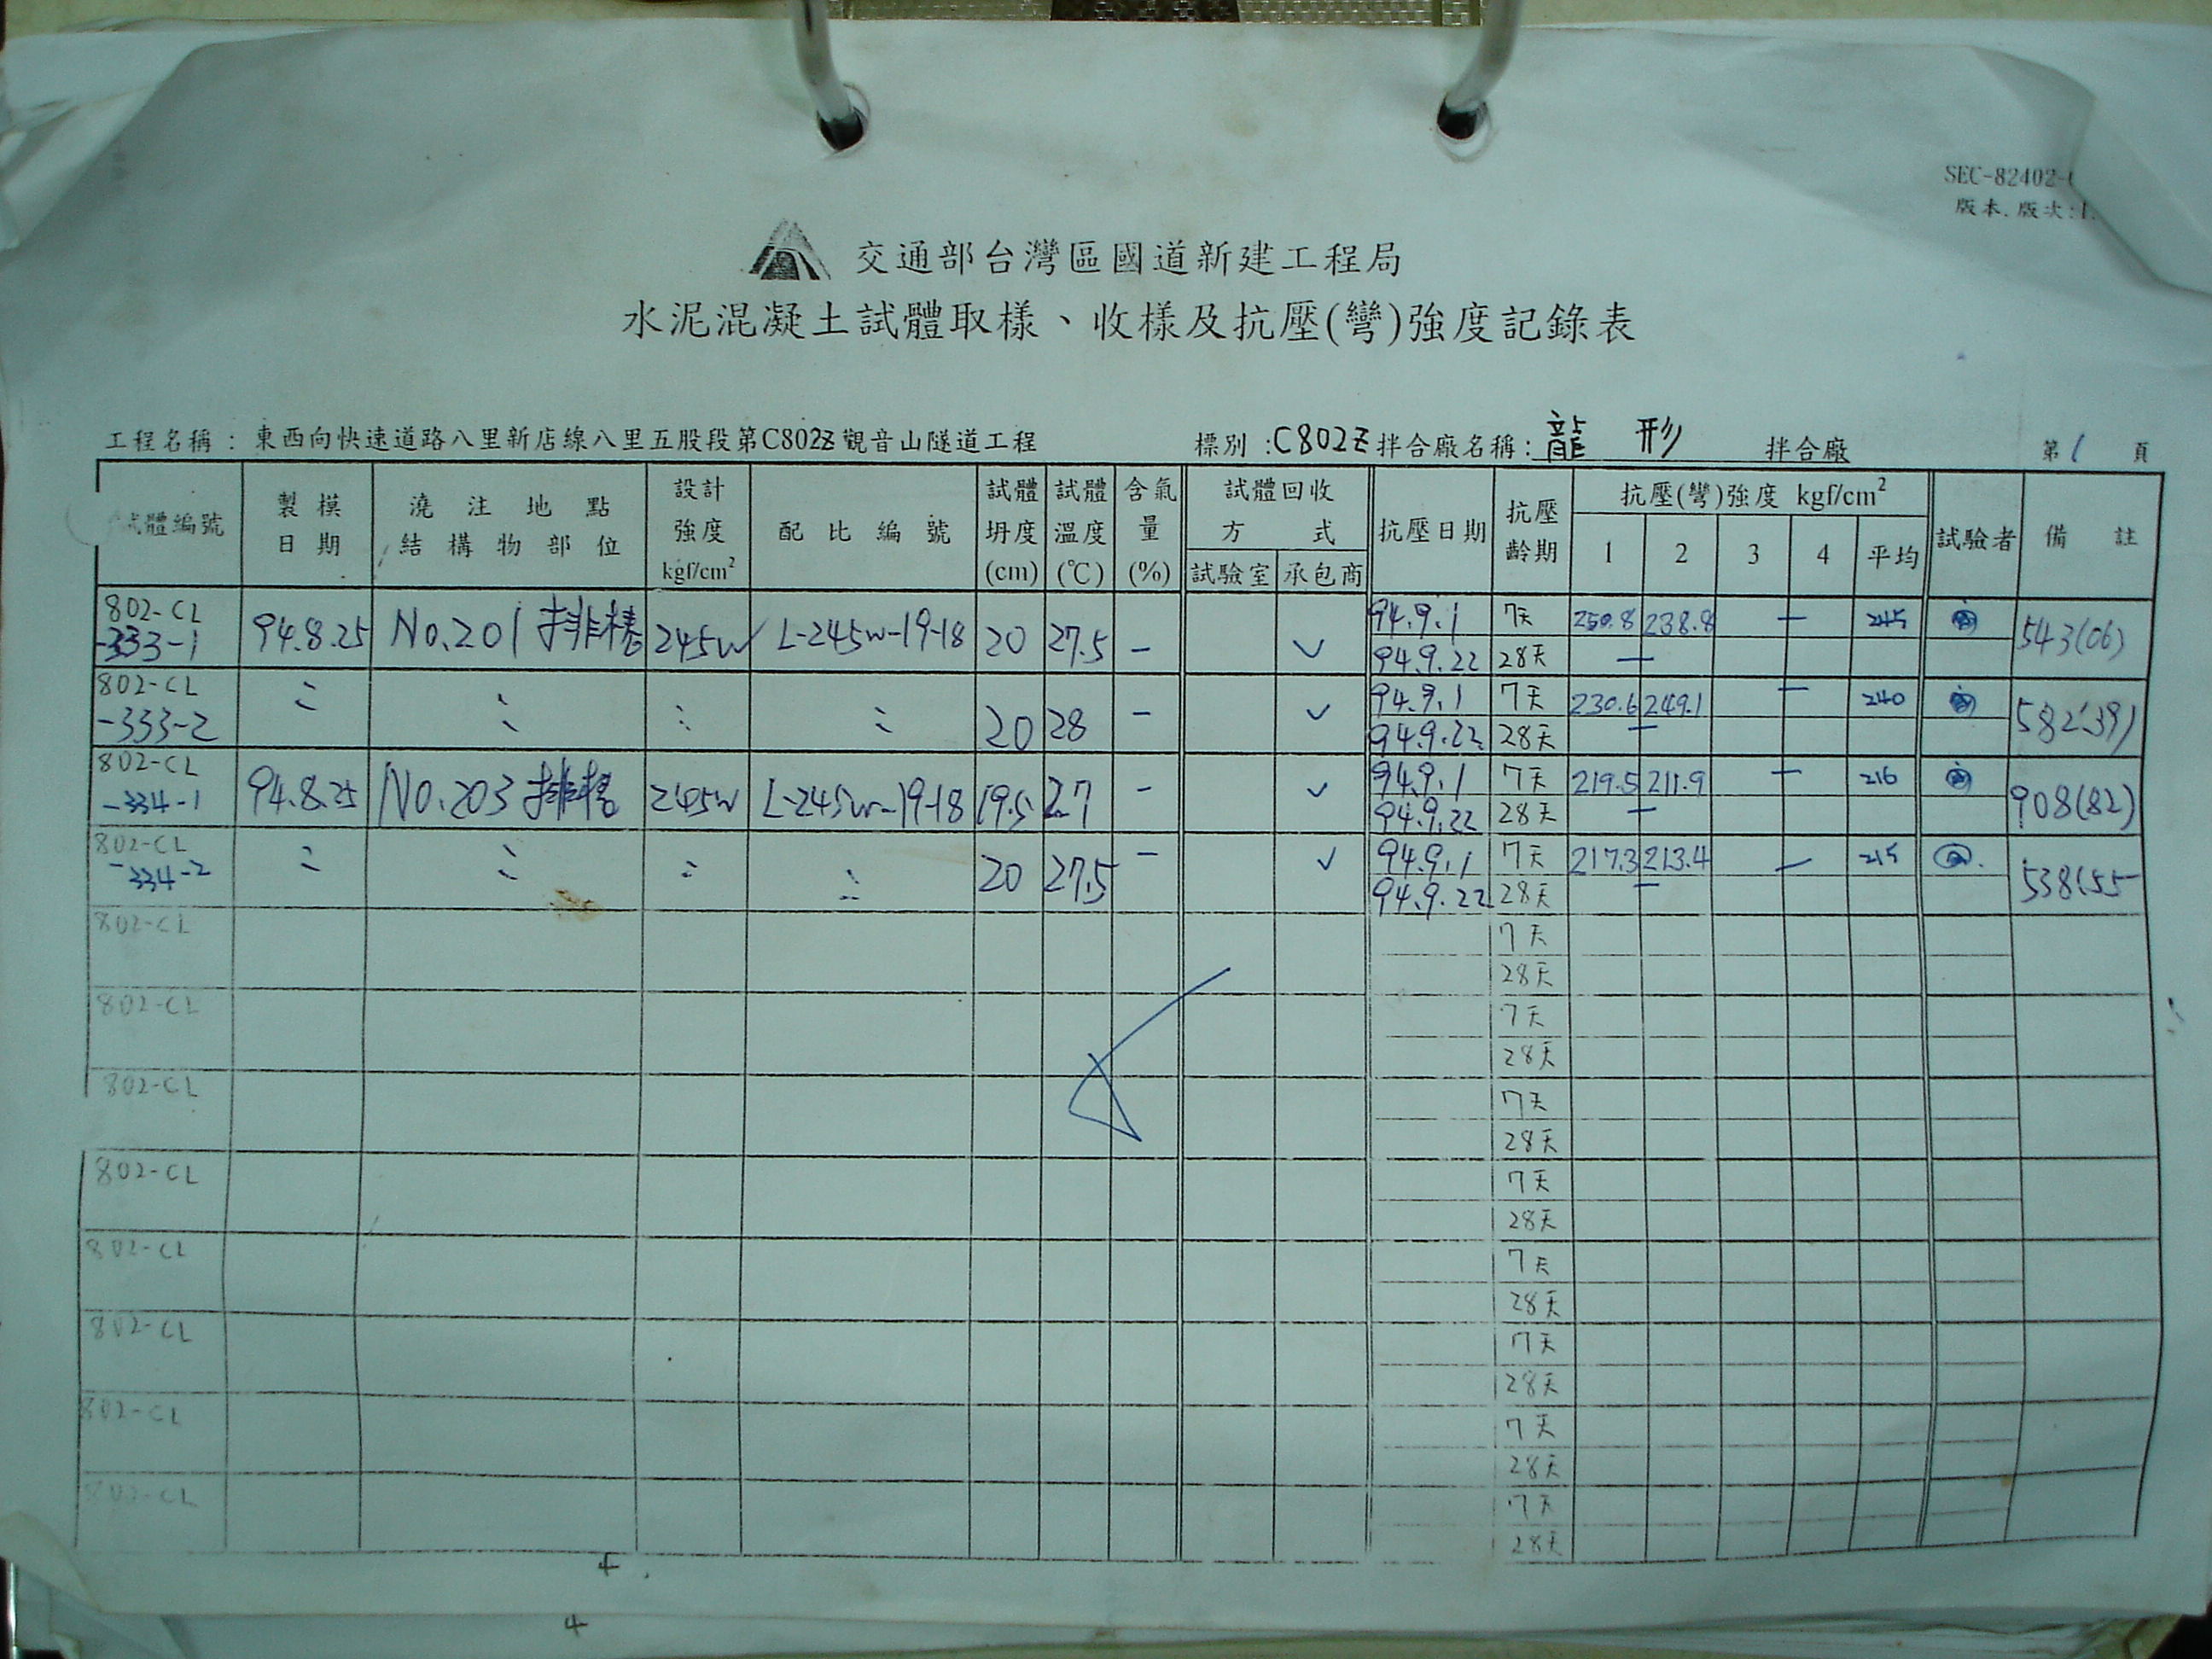 SEC-82402-
版本.版次:1.
交通部台灣區國道新建工程局
水泥混凝土試體取樣、收樣及抗壓(彎)強度記錄表
工程名稱：東西向快速道路八里新店線八里五股段第C802Z觀音山隧道工程 標別:C802Z 拌合廠名稱:龍形 拌合廠 第1頁
試體編號 製模日期 澆注地點結構物部位 設計強度kgf/cm² 配比編號 試體坍度(cm) 試體溫度(℃) 含氣量(%) 試體回收方式 試驗室 承包商 抗壓日期 抗壓齡期 抗壓(彎)強度 kgf/cm² 1 2 3 4 平均 試驗者 備註
802-CL-333-1 94.8.25 No.201 排樁 245W L-245W-19-18 20 27.5 - ✓ 94.9.1 7天 250.8 238.8 — 245 543(06)
94.9.22 28天 —
802-CL-333-2 〃 〃 〃 〃 20 28 - ✓ 94.9.1 7天 230.6 249.1 — 240 582(39)
94.9.22 28天 —
802-CL-334-1 94.8.25 No.203 排樁 245W L-245W-19-18 19.5 27 - ✓ 94.9.1 7天 219.5 211.9 — 216 908(82)
94.9.22 28天 —
802-CL-334-2 〃 〃 〃 〃 20 27.5 - ✓ 94.9.1 7天 217.3 213.4 — 215 538(55
94.9.22 28天 —
802-CL 7天
28天
802-CL 7天
28天
802-CL 7天
28天
802-CL 7天
28天
802-CL 7天
28天
802-CL 7天
28天
802-CL 7天
28天
802-CL 7天
28天
4
4